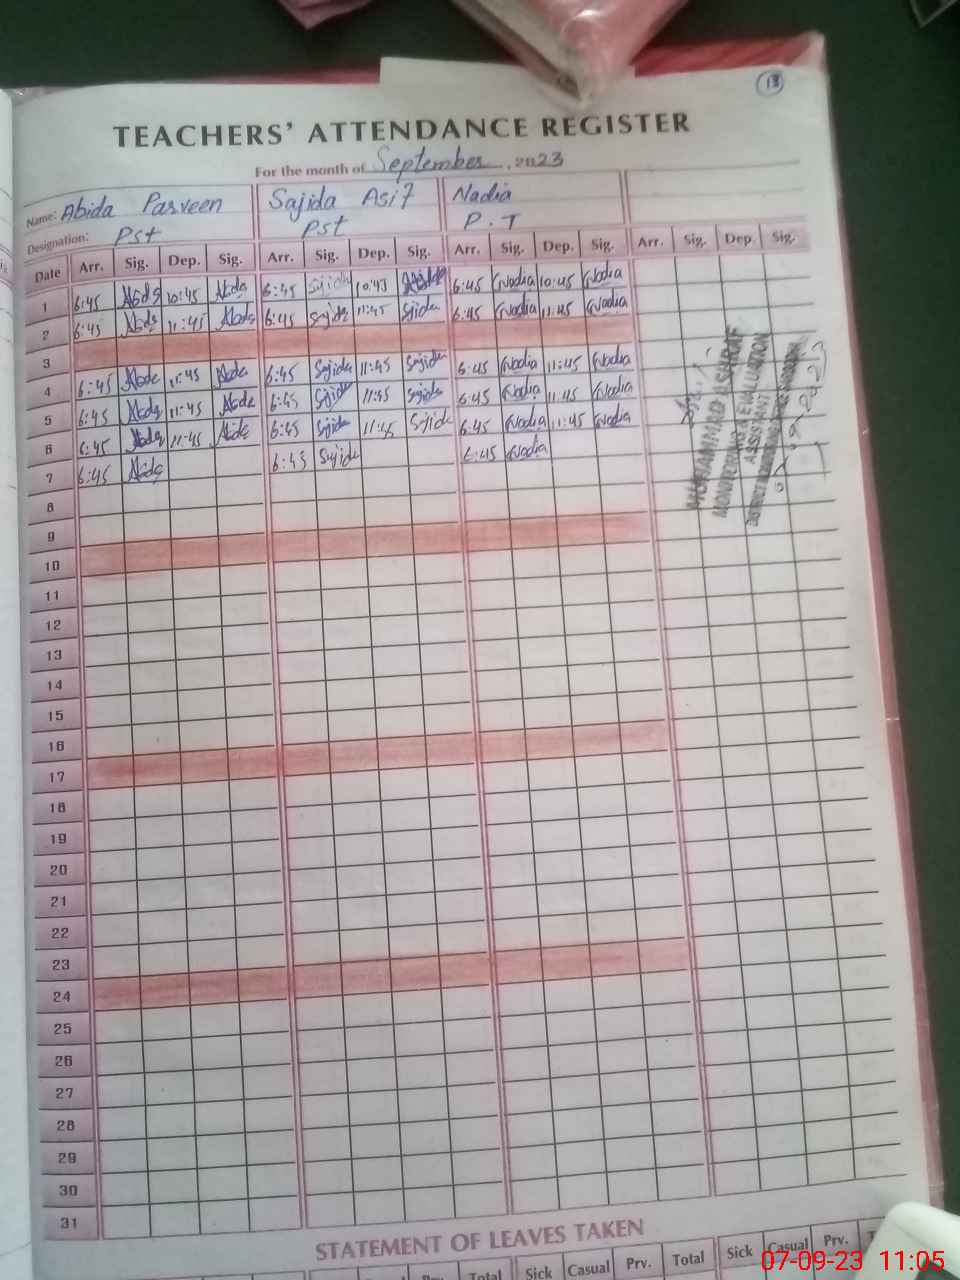 13
TEACHERS' ATTENDANCE REGISTER
For the month of September, 2023
Name: Abida Parveen Sajida Asif Nadia
Designation: Pst Pst P.T
Date Arr. Sig. Dep. Sig. Arr. Sig. Dep. Sig. Arr. Sig. Dep. Sig. Arr. Sig. Dep. Sig.
1 6:45 Abda 10:45 Abda 6:45 Sajida 10:45 6:45 Nadia 10:45 Nadia
2 6:45 Abda 11:45 Abda 6:45 Sajida 11:45 Sajida 6:45 Nadia 11:45 Nadia
3
4 6:45 Abda 11:45 Abda 6:45 Sajida 11:45 Sajida 6:45 Nadia 11:45 Nadia
5 6:45 Abda 11:45 Abda 6:45 Sajida 11:45 Sajida 6:45 Nadia 11:45 Nadia
6 6:45 Abda 11:45 Abda 6:45 Sajida 11:45 Sajida 6:45 Nadia 11:45 Nadia
7 6:45 Abda 6:45 Sajida 6:45 Nadia
8
9
10
11
12
13
14
15
16
17
18
19
20
21
22
23
24
25
26
27
28
29
30
31
MUHAMMAD
MONITORING & EVALUATION
ASSISTANT
DISTRICT
STATEMENT OF LEAVES TAKEN
Prv. Total Sick Casual Prv. Total Sick Casual Prv.
07-09-23 11:05